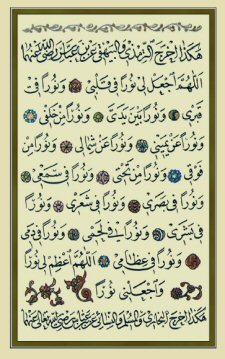 هكذا اخرج الترمذي والبيهقي عن ابن عباس رضي الله عنهما
اللهم اجعل لي نورا في قلبي ونورا في
قبري ونورا بين يدي ونورا من خلفي
ونورا عن يميني ونورا عن شمالي ونورا من
فوقي ونورا من تحتي ونورا في سمعي
ونورا في بصري ونورا في شعري ونورا
في بشري ونورا في لحمي ونورا في دمي
ونورا في عظامي اللهم اعظم لي نورا
واجعلني نورا
هكذا اخرج البخاري ومسلم والنسائي عن ابن عباس رضي الله تعالى عنهما